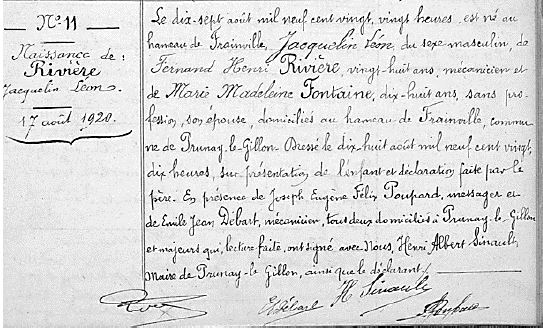 N° 11
Naissance de :
Rivière
Jacquelin Léon.
17 août 1920.
Le dix-sept août mil neuf cent vingt, vingt heures est né au
hameau de Frainville, Jacquelin Léon, du sexe masculin, de
Fernand Henri Rivière, vingt-huit ans, mécanicien et
de Marie Madeleine Fontaine, dix-huit ans, sans pro-
fession, son épouse, domiciliés au hameau de Frainville, commu-
ne de Prunay-le-Gillon. Dressé le dix-huit août mil neuf cent vingt,
dix heures, sur présentation de l'enfant et déclaration faite par le
père. En présence de Joseph Eugène Félix Poupard, messager et
de Emile Jean Débart, mécanicien, tous deux domiciliés à Prunay-le-Gillon
et majeurs qui, lecture faite, ont signé avec Nous, Henri Albert Sinault,
Maire de Prunay-le-Gillon, ainsi que le déclarant.
EDébart H Sinault